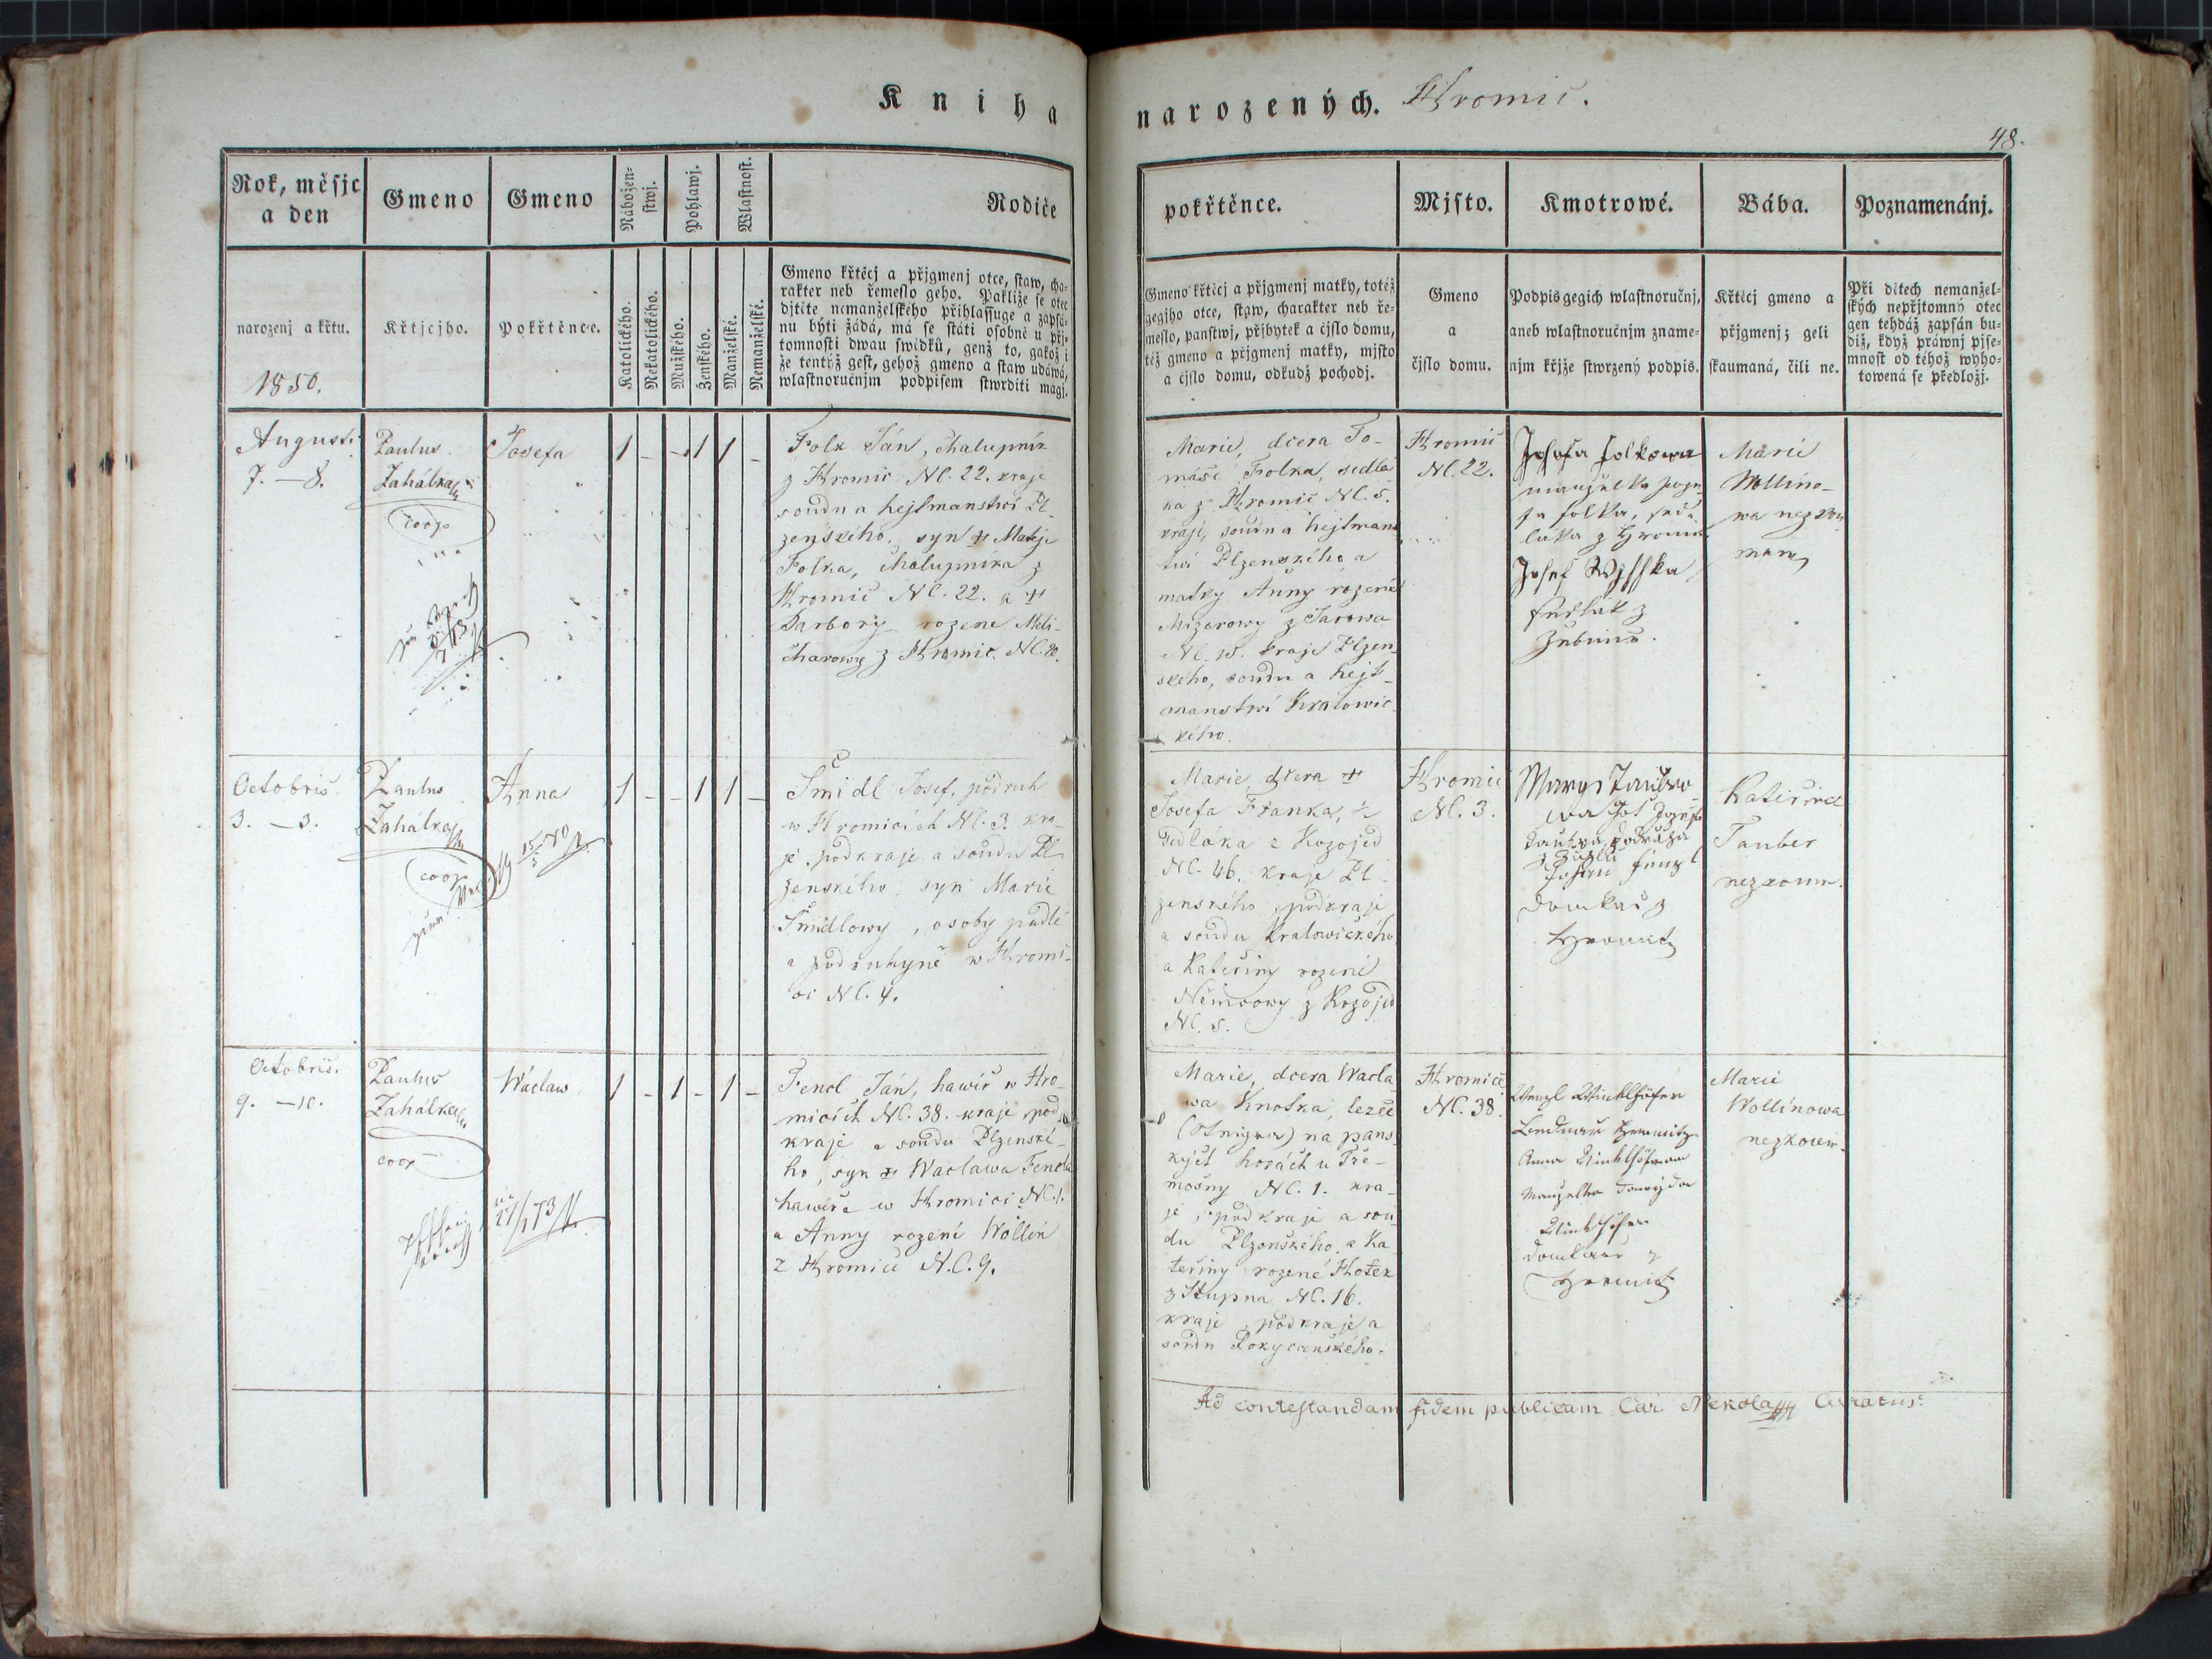 Kniha
narozených. Hromic.
48.
Rok, měsjc
a den
Gmeno
Gmeno
Nábožen-
stwj.
Pohlawj.
Wlastnost.
Rodiče
pokřtěnce.
Mjsto.
Kmotrowé.
Bába.
Poznamenánj.
narozenj a křtu.
1850.
Křtjcjho.
Pokřtěnce.
Katolického.
Nekatolického.
Mužského.
Ženského.
Manželské.
Nemanželské.
Gmeno křtěcj a přjgmenj otce, staw, cha-
rakter neb řemeslo geho. Pakliže se otec
djtěte nemanželského přihlassuge a zapsá-
nu býti žádá, má se státi osobně u přj-
tomnosti dwau swědků, genž to, gakož i
že tentýž gest, gehož gmeno a staw udáwá,
wlastnoručnjm podpisem stwrditi magj.
Gmeno křtěcj a přjgmenj matky, totéž
gegiho otce, staw, charakter neb ře-
meslo, panstwj, přjbytek a čjslo domu,
též gmeno a přjgmenj matky, mjsto
a čjslo domu, odkudž pochodj.
Gmeno
a
čjslo domu.
Podpis gegich wlastnoručnj,
aneb wlastnoručnjm zname-
njm křjže stwrzený podpis.
Křtěcj gmeno a
přjgmenj; geli
skaumaná, čili ne.
Při dětech nemanžel-
ských nepřjtomný otec
gen tehdáž zapsán bu-
diž, když práwnj pjse-
mnost od téhož wyho-
towená se předložj.
Augusti
7. — 8.
Paulus
Zahálka
coop
Josefa
1 - - 1 1 -
Folk Ján, chalupník
z Hromic NC. 22. kraje
soudu a hejtmanství Pl-
zeňského, syn + Matěje
Folka, chalupníka z
Hromic NC. 22. a +
Barbory rozené Meli-
charowy z Hromic NC. 20.
Marie, dcera To-
máše Folka, sedlá
ka z Hromic NC. 5.
kraje, soudu a hejtman
twí Plzenského a
matky Anny rozené
Mizerowy z Jarowa
NC. 15. kraje Plzen
ského, soudu a hejt-
manstwí Kralowic-
kého.
Hromic
NC. 22.
Josefa Folkowa
manzelka
Folka, sed-
laka z Hromic
Josef
sedlák z
Marie
Wollino-
wa nezkou
man
Octobris
3. — 3.
Paulus
Zahálka
coop
Anna
15/5 1/2
1 - - 1 1 -
Šmidl Josef, podruh
w Hromicích NC. 3. kra-
je, podkraje a soudu Pl
zenského, syn Marie
Šmidlowy, osoby padlé
a podruhyně w Hromi-
ci NC. 4.
Marie, dcera +
Josefa Franka,
sedláka z Kozojed
NC. 46. kraje Pl-
zenského, podkraje
a soudu Kralowického
a Kateřiny rozené
Němcowy z Kozojed
NC. 5.
Hromic
NC. 3.
Marya Taubro
wa
podruha
Johan
domkař z
Hromitz
Kateřina
Tauber
nezkoum.
Octobris.
9. — 10.
Paulus
Zahálka
coop
Wáclaw
1 - 1 - 1 -
Fencl Ján, hawíř w Hro
micích NC. 38. kraje pod
kraje a soudu Plzenské-
ho, syn + Waclawa Fencla
hawíře w Hromici NC. 1.
a Anny rození Wöllin
z Hromic N.C. 9.
Marie, dcera Wacla
wa Knotka, lezce
na pans
kých horách u Tře-
mošny NC. 1. kra-
je, podkraje a sou
du Plzenského, a Ka
teřiny rozené Kotek
z Stupna NC. 16.
kraje, podkraje a
soudu Rokycanského.
Hromic
NC. 38.
Wenzl Winklhöfer
Hromitz
Anna Winklhöferowa
Manzelka
Winklhöfer
Domkař z
Hromitz
Marie
Wollinowa
nezkoum.
Ad contestandam fidem publicam Car Nekola Curatus.